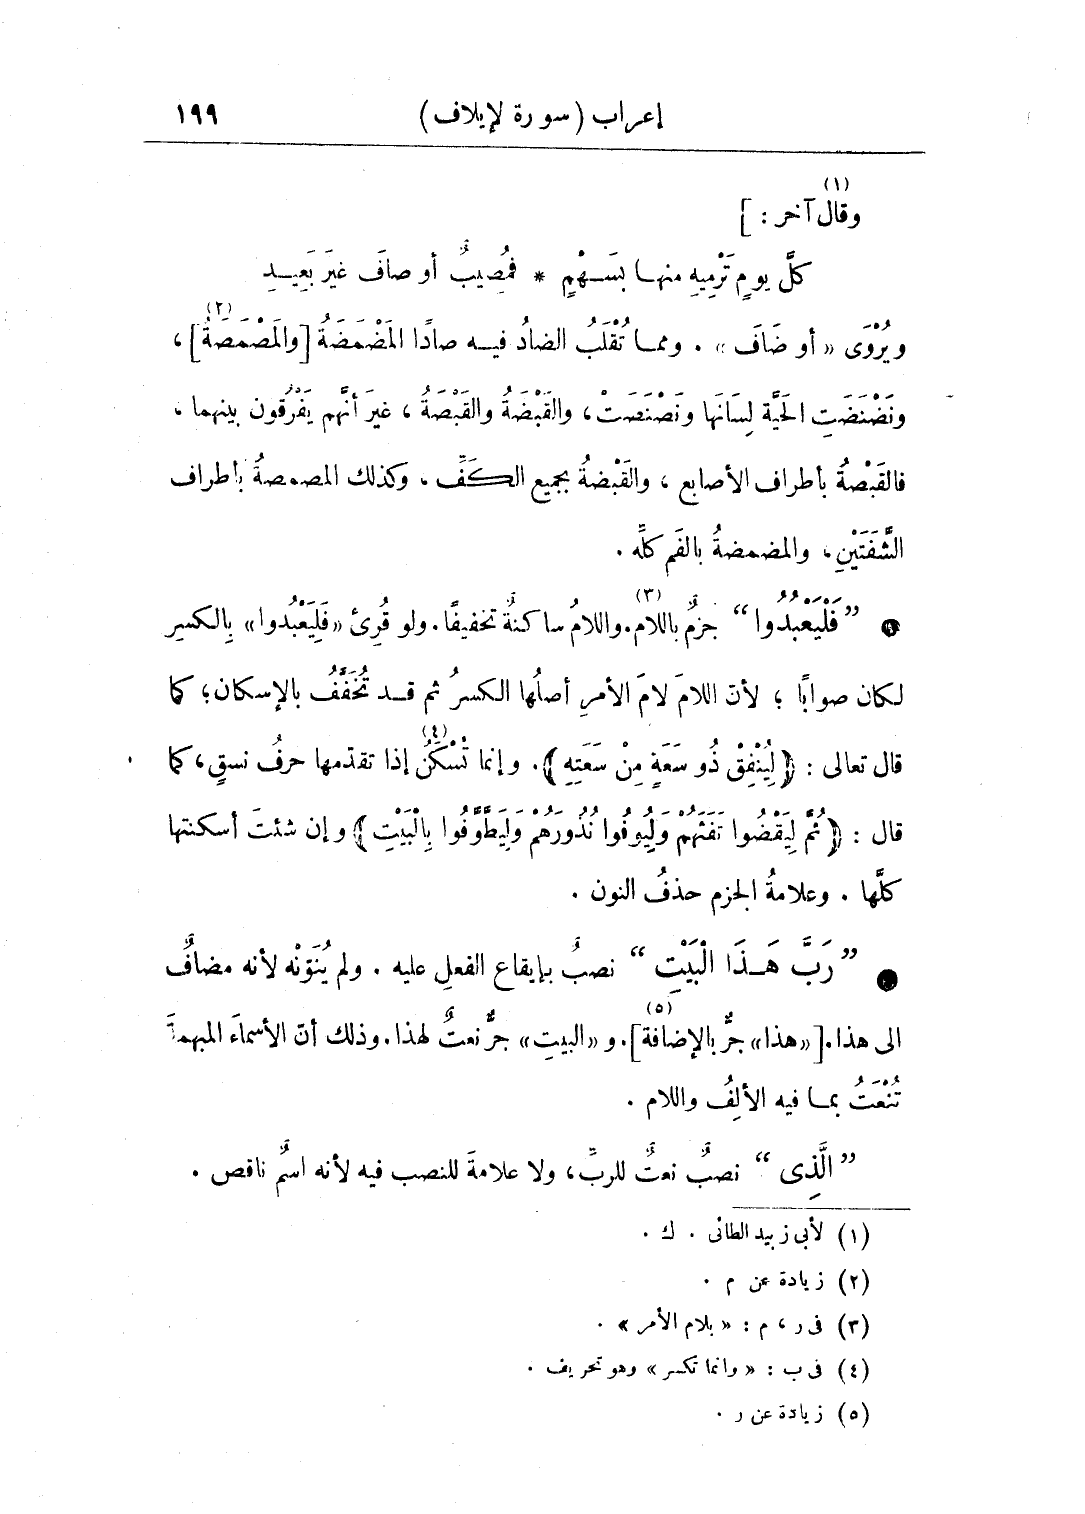 إعراب (سورة لإيلاف) ١٩٩
(١)
وقال آخر : ]
كلَّ يومٍ تَرْمِيهِ منها بسَهْمٍ * فمُصِيبٌ أو صافَ غيرَ بَعِيدِ
(٢)
ويُرْوَى « أو ضَافَ » . ومما تُقْلَبُ الضادُ فيه صادًا المَضْمَضَةُ [والمَصْمَصَةُ] ،
ونَضْنَضَتِ الحَيَّة لِسَانَها ونَصْنَصَتْ ، والقَبْضَةُ والقَبْصَةُ ، غيرَ أنَّهم يَفْرُقون بينهما ،
فالقَبْصةُ بأطراف الأصابع ، والقَبْضةُ بجميع الكَفِّ ، وكذلك المصمصةُ بأطراف
الشَّفَتَيْنِ ، والمضمضةُ بالفَم كلِّه .
(٣)
• ” فَلْيَعْبُدُوا “ جزمٌ باللام . واللامُ ساكنةٌ تخفيفًا . ولو قُرِئ «فَلِيَعْبُدوا» بِالكسرِ
لكان صوابًا ؛ لأن اللامَ لامَ الأمرِ أصلُها الكسرُ ثم قد تُخَفَّفُ بالإسكان؛ كما
(٤)
قال تعالى : ﴿ لِيُنْفِقْ ذُو سَعَةٍ مِنْ سَعَتِهِ ﴾. وإنما تُسْكَّنُ إذا تقدّمها حرفُ نسقٍ ، كما
قال : ﴿ ثُمَّ لِيَقْضُوا تَفَثَهُمْ وَلِيُوفُوا نُذُورَهُمْ وَلِيَطَّوَّفُوا بِالْبَيْتِ ﴾ وإن شئتَ أسكنتها
كلَّها . وعلامةُ الجزم حذفُ النون .
• ” رَبَّ هَذَا الْبَيْتِ “ نصبٌ بإيقاع الفعلِ عليه . ولم يُنَوَّنْه لأنه مضافٌ
(٥)
الى هذا . [«هذا» جرٌّ بالإضافة] . و «البيتِ» جرٌّ نعتٌ لهذا . وذلك أنّ الأسماءَ المبهمةَ
تُنْعَتُ بما فيه الألِفُ واللام .
” الَّذِى “ نصبٌ نعتٌ للربِّ ، ولا علامةَ للنصب فيه لأنه اسمٌ ناقص .
(١) لأبى زبيد الطائى . ك .
(٢) زيادة عن م .
(٣) فى ر ، م : « بلام الأمر » .
(٤) فى ب : « وانما تكسر » وهو تحريف .
(٥) زيادة عن ر .